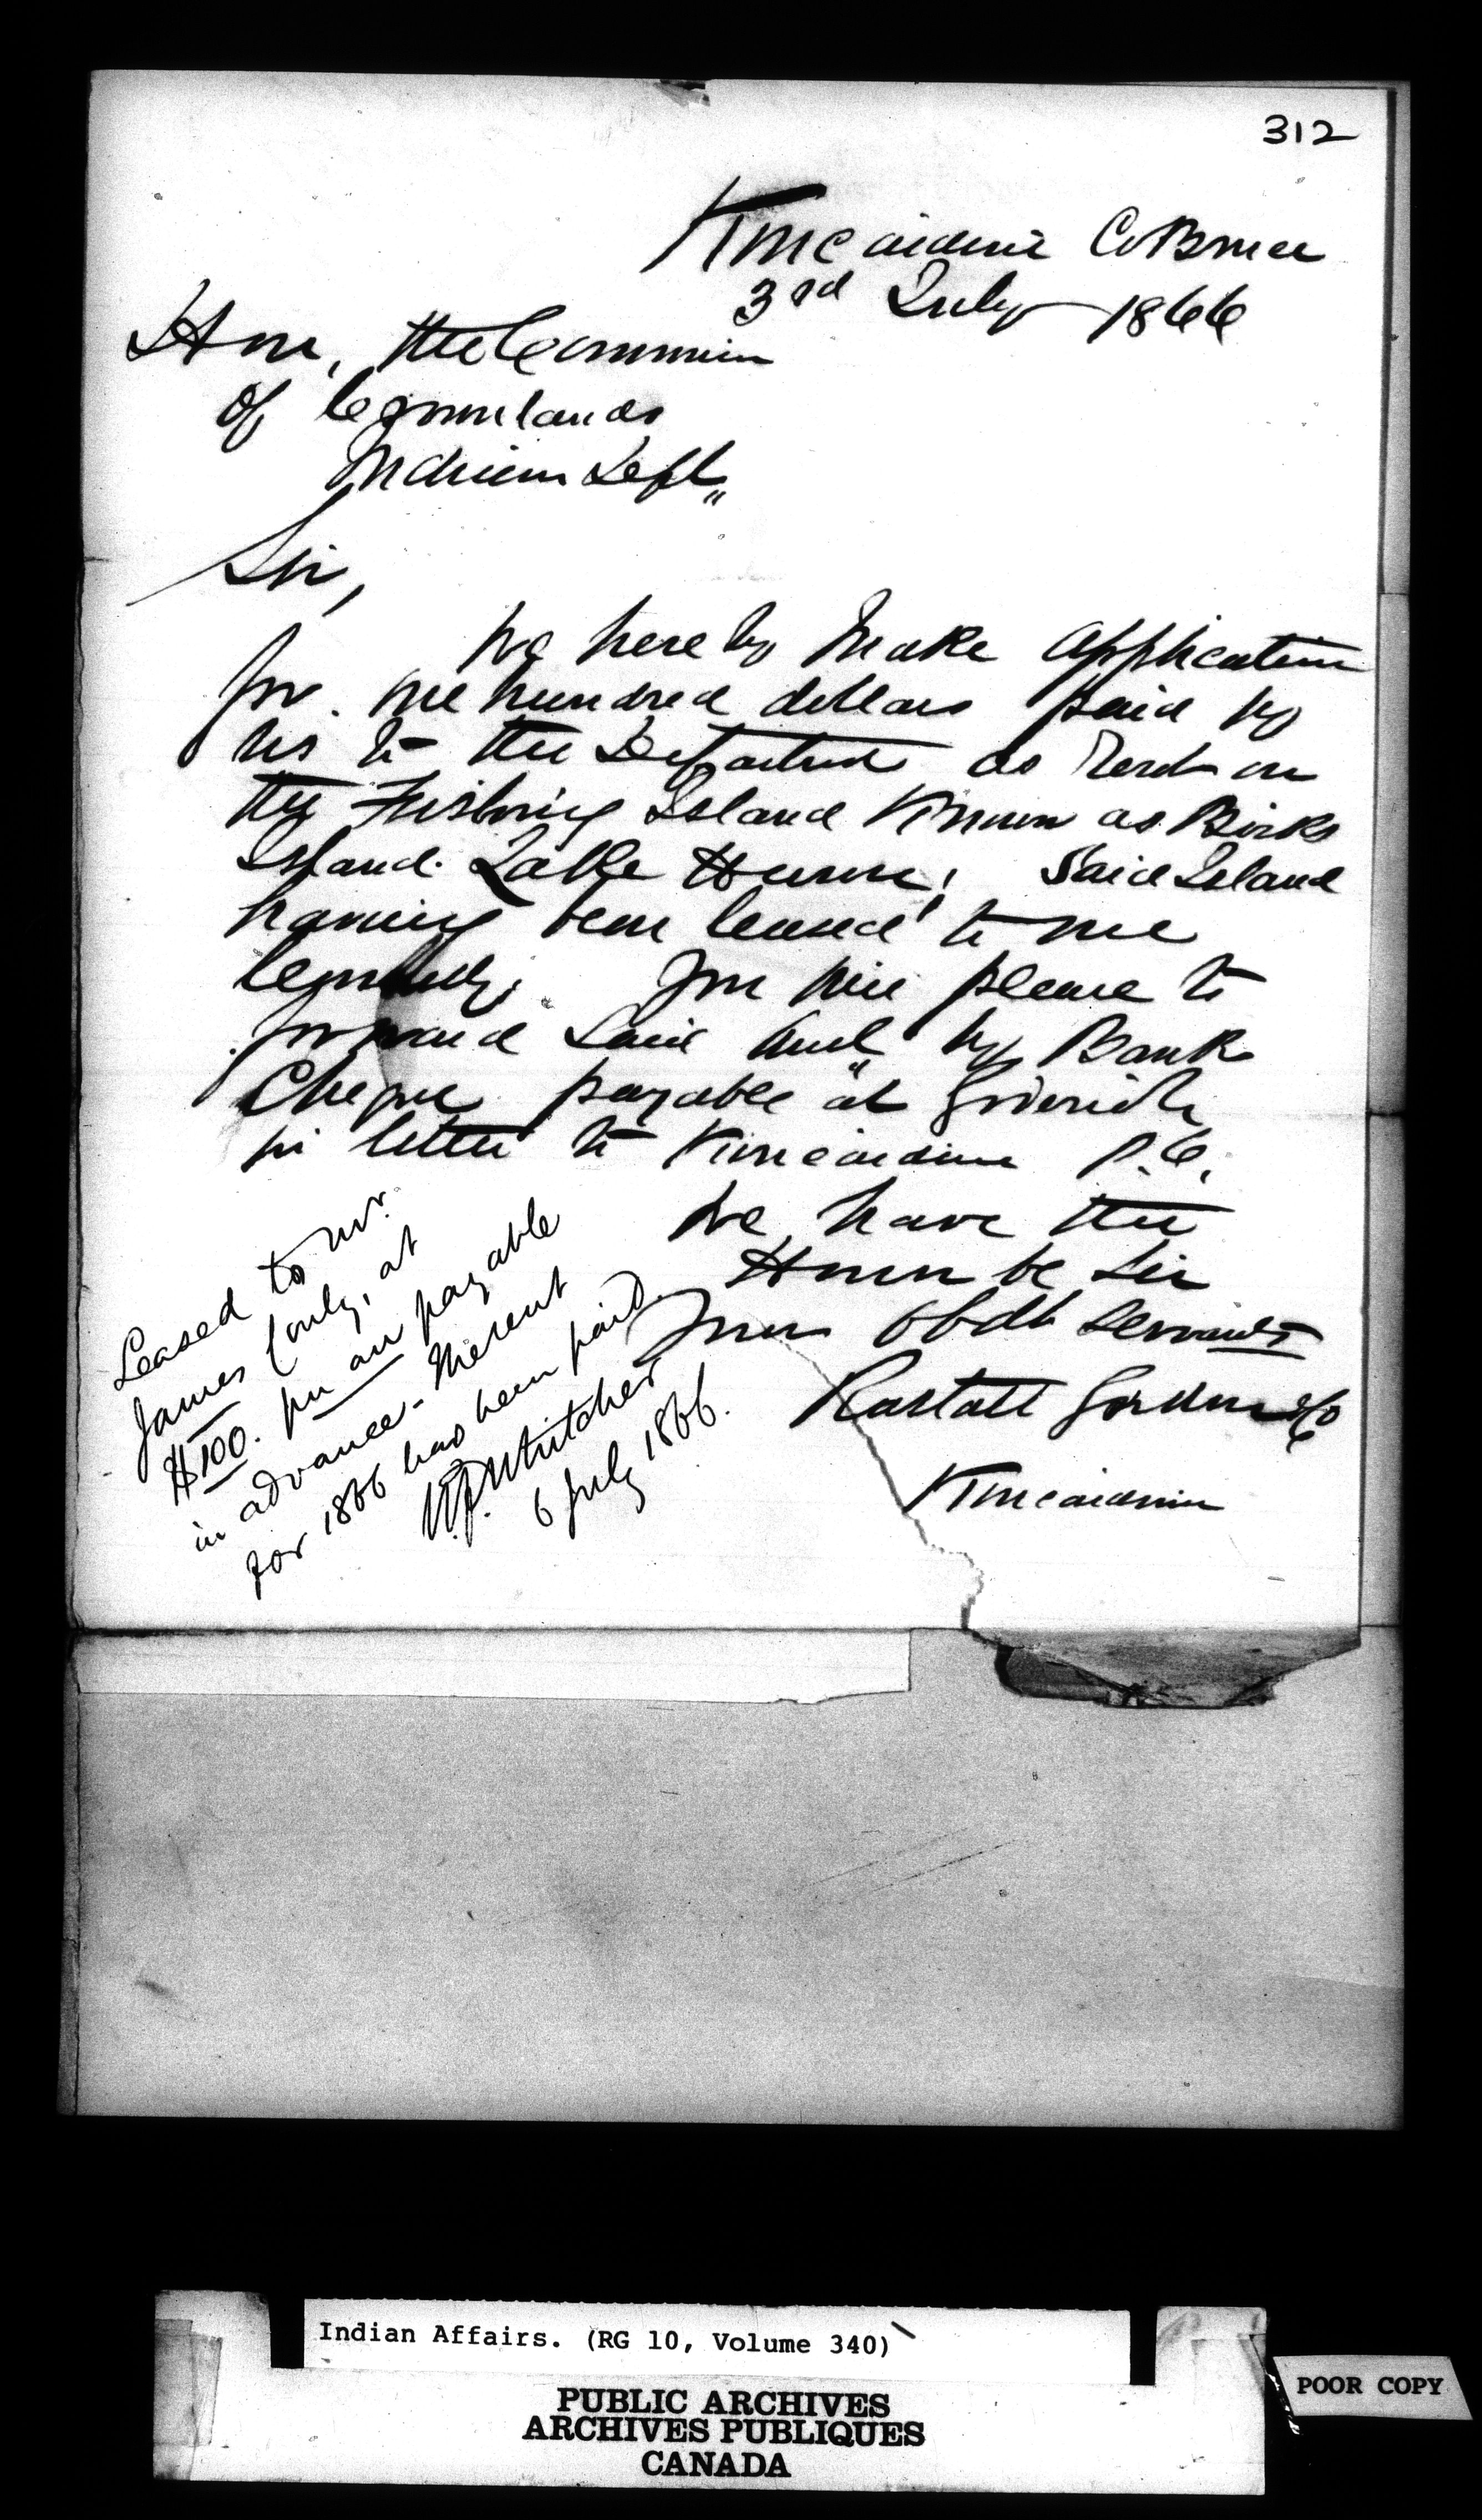 312
Kincardine Co Bruce
3rd July 1866
Hon, the Commissn
of Crown lands
Indian Dept,,
Sir,
We hereby make application
for one hundred dollars paid by
us to the Department as Rent on
the Fishing Island Known as Birks
Island Lake Huron, Said Island
having been leased to one
You will please to
forward said amt by Bank
Cheque payable at Goderich
in letter to Kincardine P.O.
We have the
Honor be Sir
Your obdt servants
Rastall Gordon & Co
Kincardine
Leased to Mr.
James Conly, at
$100. per an payable
in advance. The rent
for 1866 has been paid.
W.F. Whitcher
6 July 1866.
Indian Affairs. (RG 10, Volume 340)
PUBLIC ARCHIVES
ARCHIVES PUBLIQUES
CANADA
POOR COPY